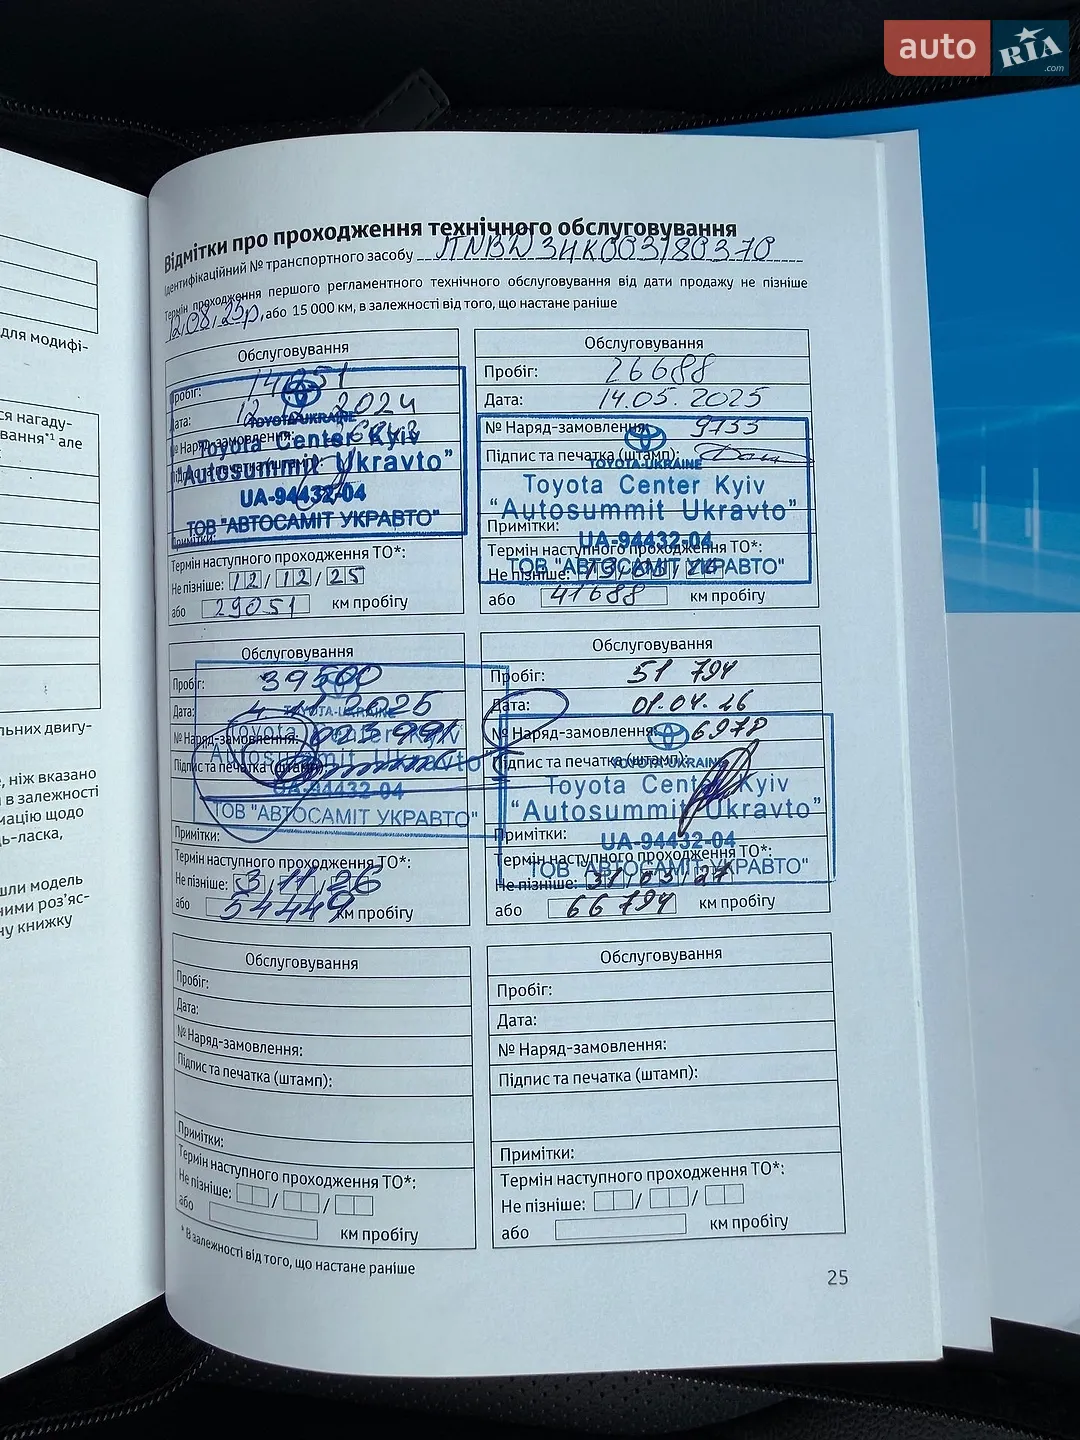 auto RIA.com
Відмітки про проходження технічного обслуговування
Ідентифікаційний № транспортного засобу JTNBW3HK003180370
Термін проходження першого регламентного технічного обслуговування від дати продажу не пізніше
12.08.25р, або 15 000 км, в залежності від того, що настане раніше
Обслуговування
Пробіг: 14051
Дата: 12 2024
№ Наряд-замовлення:
Підпис та печатка (штамп):
TOYOTA-UKRAINE
Toyota Center Kyiv
"Autosummit Ukravto"
UA-94432-04
ТОВ "АВТОСАМІТ УКРАВТО"
Примітки:
Термін наступного проходження ТО*:
Не пізніше: 12/12/25
або 29051 км пробігу
Обслуговування
Пробіг: 26688
Дата: 14.05.2025
№ Наряд-замовлення: 9733
Підпис та печатка (штамп):
TOYOTA-UKRAINE
Toyota Center Kyiv
"Autosummit Ukravto"
Примітки:
UA-94432-04
Термін наступного проходження ТО*:
ТОВ "АВТОСАМІТ УКРАВТО"
Не пізніше: 13/05/26
або 41688 км пробігу
Обслуговування
Пробіг: 39500
Дата: 4.11.2025
TOYOTA-UKRAINE
№ Наряд-замовлення:
Toyota Center Kyiv
Підпис та печатка (штамп):
"Autosummit Ukravto"
UA-94432-04
ТОВ "АВТОСАМІТ УКРАВТО"
Примітки:
Термін наступного проходження ТО*:
Не пізніше: 3/11/26
або 54449 км пробігу
Обслуговування
Пробіг: 51 794
Дата: 01.04.26
№ Наряд-замовлення: 6978
Підпис та печатка (штамп):
TOYOTA-UKRAINE
Toyota Center Kyiv
"Autosummit Ukravto"
Примітки:
UA-94432-04
Термін наступного проходження ТО*:
ТОВ "АВТОСАМІТ УКРАВТО"
Не пізніше: 31/03/27
або 66 794 км пробігу
Обслуговування
Пробіг:
Дата:
№ Наряд-замовлення:
Підпис та печатка (штамп):
Примітки:
Термін наступного проходження ТО*:
Не пізніше: / /
або км пробігу
Обслуговування
Пробіг:
Дата:
№ Наряд-замовлення:
Підпис та печатка (штамп):
Примітки:
Термін наступного проходження ТО*:
Не пізніше: / /
або км пробігу
* В залежності від того, що настане раніше
25
для модифі-
ся нагаду-
вання"*¹ але
льних двигу-
, ніж вказано
і в залежності
мацію щодо
дь-ласка,
шли модель
ними роз'яс-
ну книжку